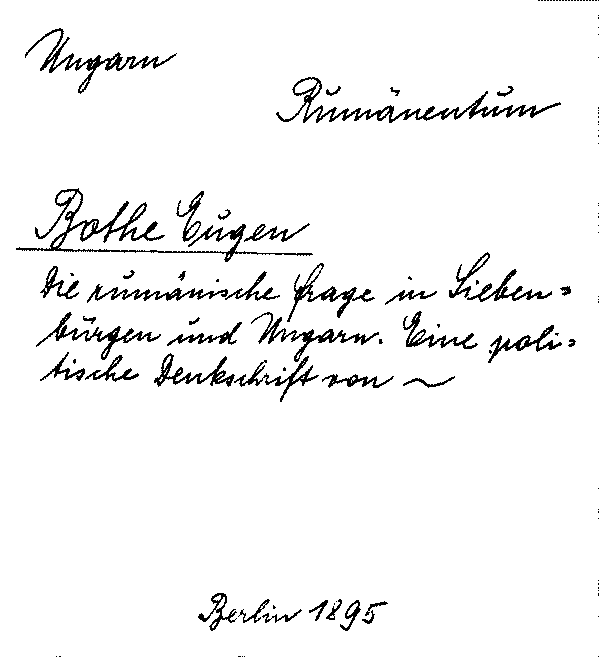 Ungarn
Rumänentum
Bothe Eugen
Die rumänische Frage in Sieben=
bürgen und Ungarn. Eine poli=
tische Denkschrift von ~
Berlin 1895